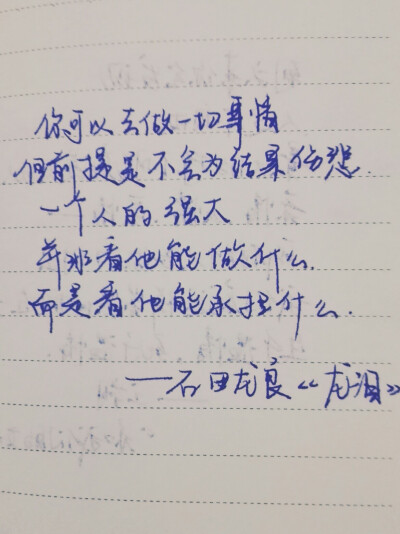 你可以去做一切事情
但前提是不会为结果伤悲.
一个人的强大
并非看他能做什么.
而是看他能承担什么.
——石田龙良《龙泪》